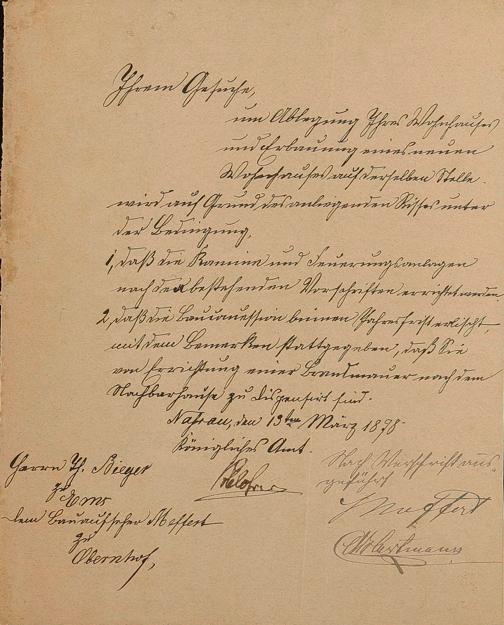 Ihrem Gesuche,
um Ablegung Ihres Wohnhauses
und Erbauung eines neuen
Wohnhauses auf derselben Stelle
wird auf Grund des anliegenden Risses unter
der Bedingung,
1, daß die Kamine und Feuerungsanlagen
nach den bestehenden Vorschriften errichtet werden
2, daß die Bauconcession binnen Jahresfrist erlischt
mit dem Bemerken stattgegeben, daß Sie
von Errichtung einer Brandmauer nach dem
Nachbarhause zu dispensirt sind.
Nassau, den 13ten März 1898.
Königliches Amt.
Herrn Th. Bieger
zu Ems
dem Bauaufseher Meffert
zu
Obernhof,
Nach Vorschrift aus-
geführt
Meffert